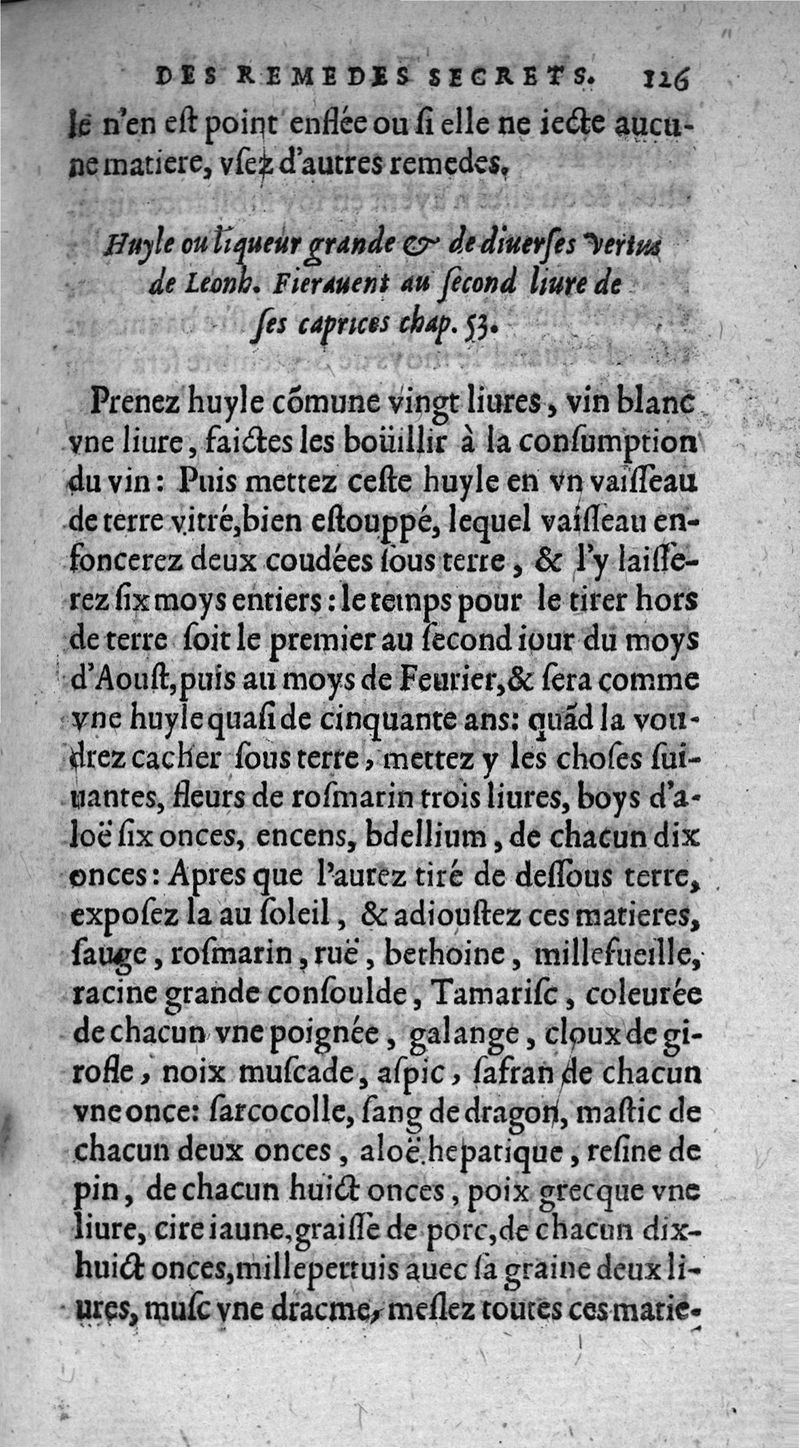 DES REMEDES SECRETS. 126
le n'en eſt point enflée ou ſi elle ne iecte aucu-
ne matiere, vſez d'autres remedes.
Huyle ou liqueur grande & de diuerſes vertus
de Leonh. Fierauent au ſecond liure de
ſes caprices chap. 53.
Prenez huyle cõmune vingt liures, vin blanc
vne liure, faictes les boüillir à la conſumption
du vin: Puis mettez ceſte huyle en vn vaiſſeau
de terre vitré, bien eſtouppé, lequel vaiſſeau en-
foncerez deux coudées ſous terre, & l'y laiſſe-
rez ſix moys entiers: le temps pour le tirer hors
de terre ſoit le premier au ſecond iour du moys
d'Aouſt, puis au moys de Feurier, & ſera comme
vne huyle quaſi de cinquante ans: quãd la vou-
drez cacher ſous terre, mettez y les choſes ſui-
uantes, fleurs de roſmarin trois liures, boys d'a-
loë ſix onces, encens, bdellium, de chacun dix
onces: Apres que l'aurez tiré de deſſous terre,
expoſez la au ſoleil, & adiouſtez ces matieres,
ſauge, roſmarin, ruë, bethoine, millefueille,
racine grande conſoulde, Tamariſc, coleurée
de chacun vne poignée, galange, cloux de gi-
rofle, noix muſcade, aſpic, ſafran de chacun
vne once: ſarcocolle, ſang de dragon, maſtic de
chacun deux onces, aloë hepatique, reſine de
pin, de chacun huict onces, poix grecque vne
liure, cire iaune, graiſſe de porc, de chacun dix-
huict onces, millepertuis auec ſa graine deux li-
ures, muſc vne dracme, meſlez toutes ces matie-